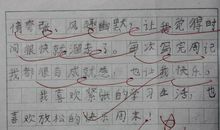 情奇強，风趣幽默，让我觉得时
间很快就溜走了。每次写完周记
我都很有成就感，也让我快乐。
我喜欢紧张的学习生活，也
喜欢放松的快乐周末。